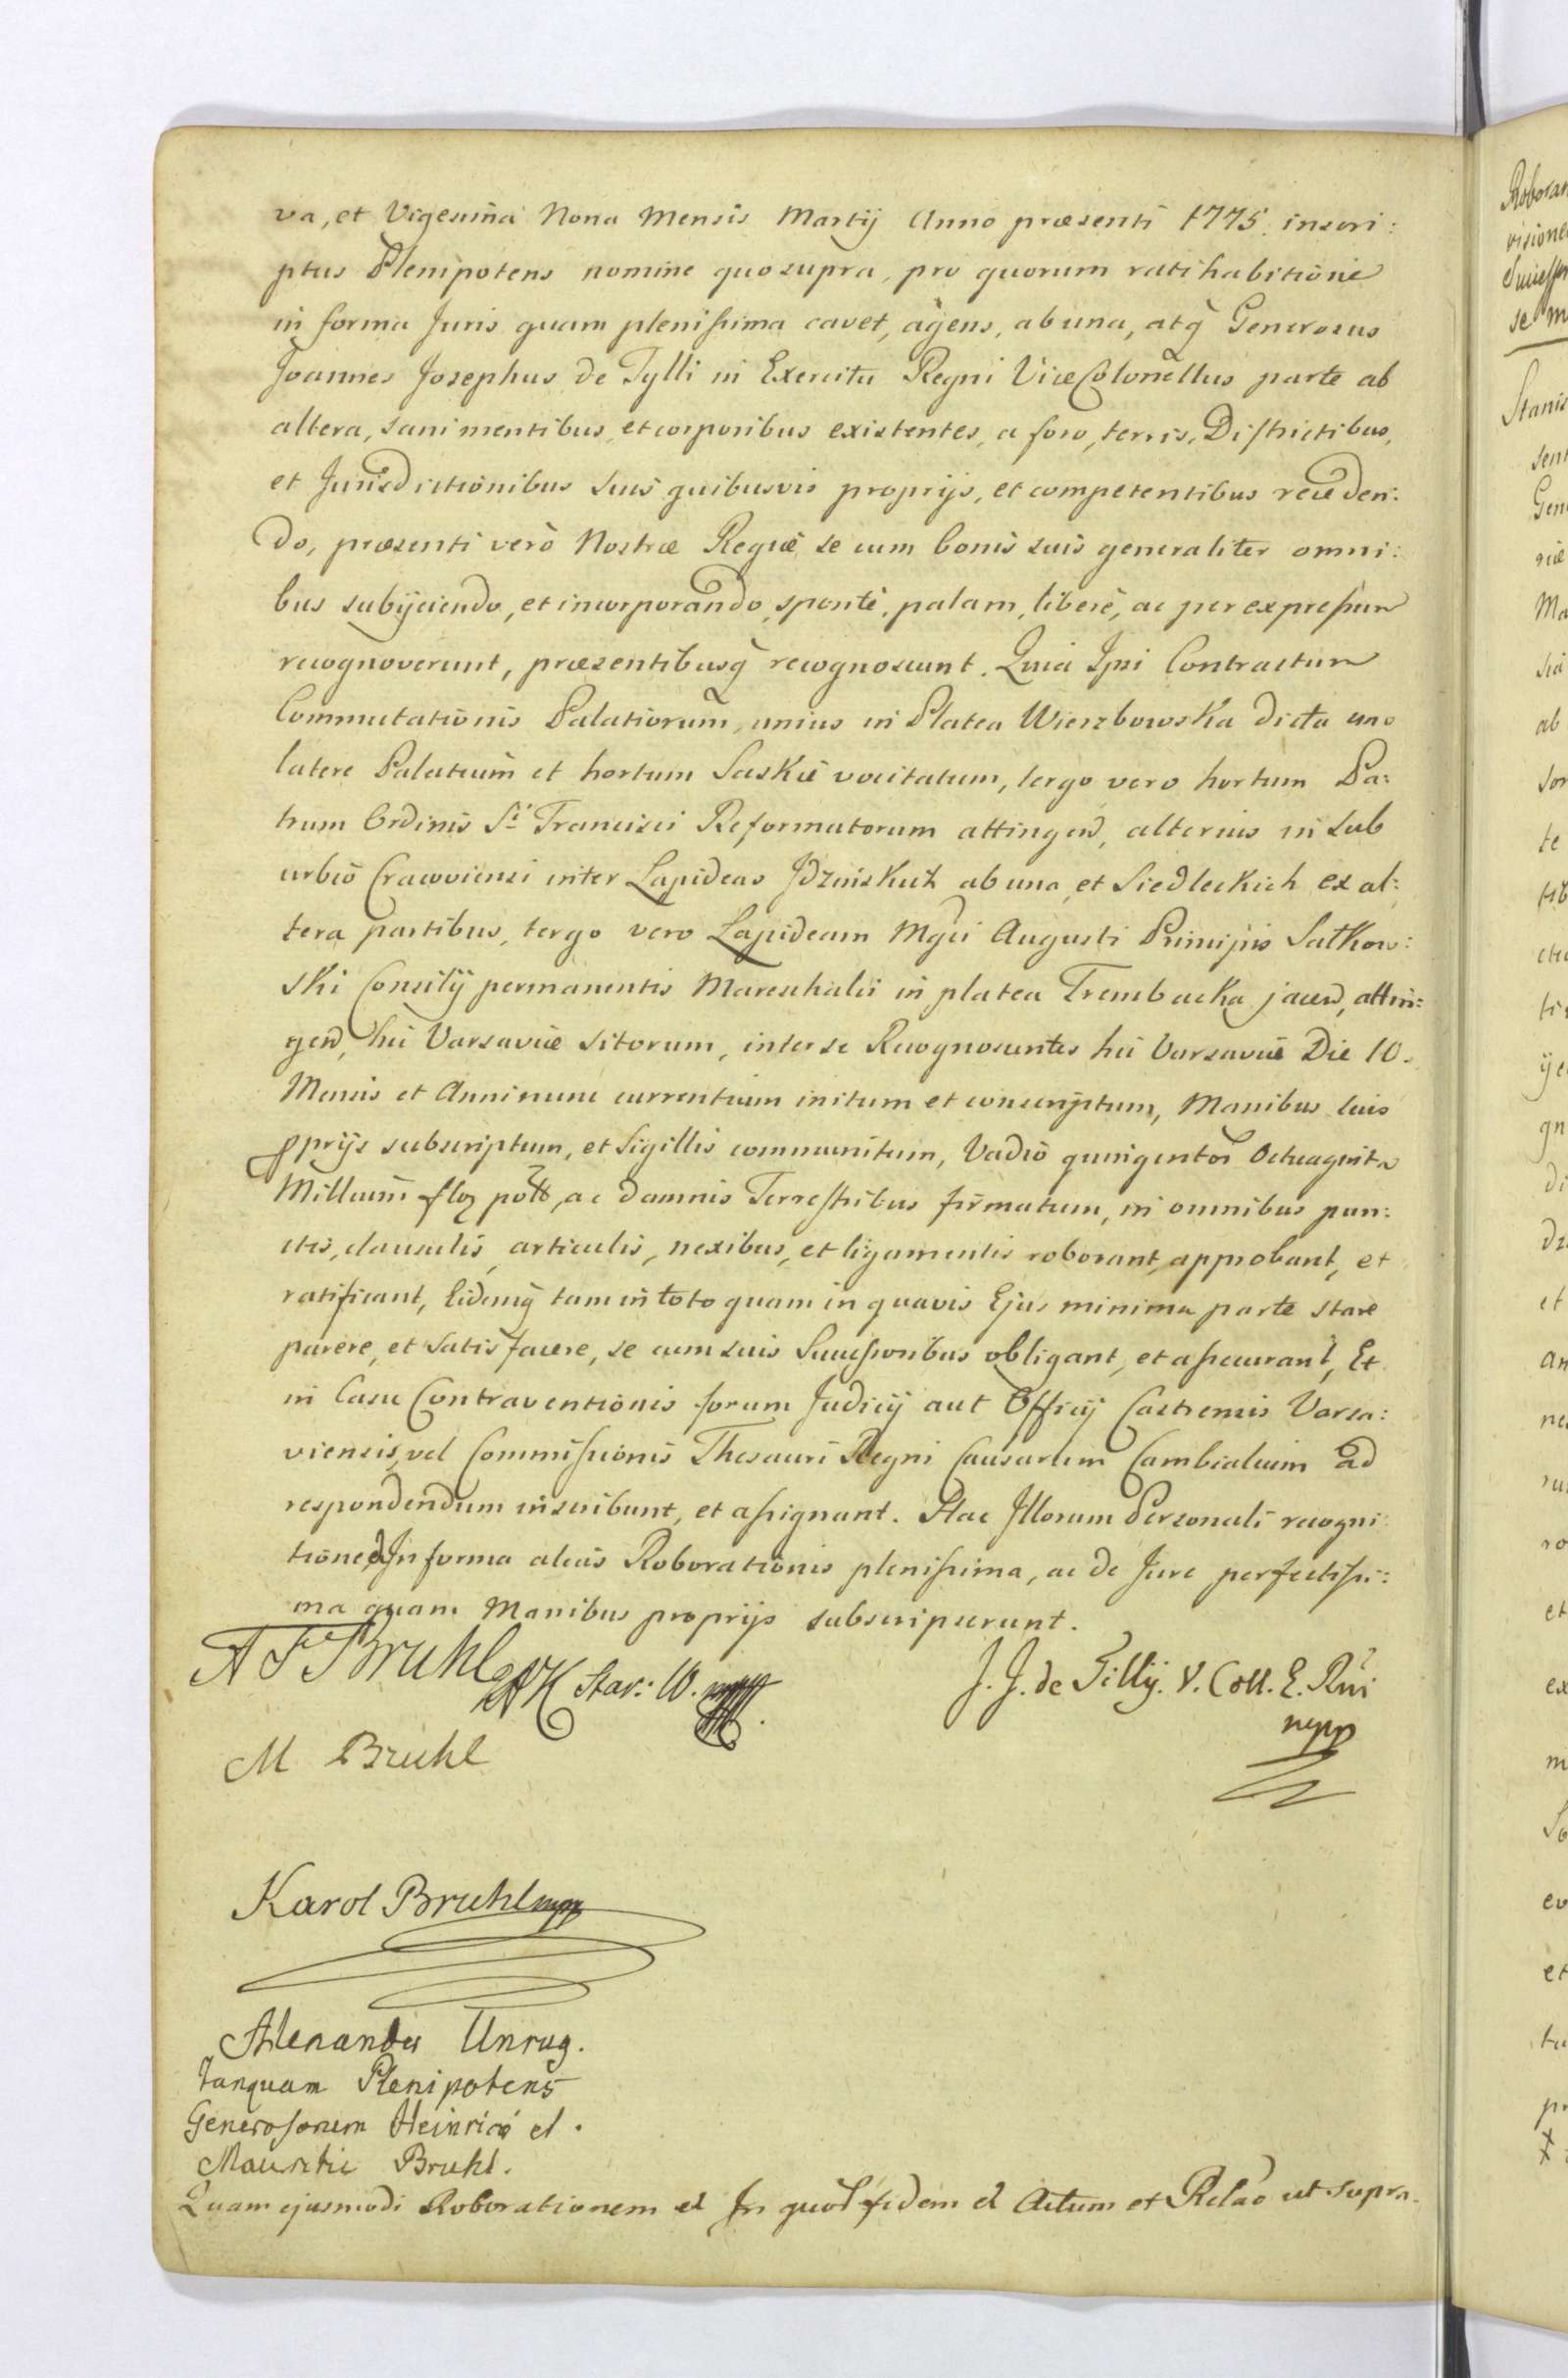 va, et Vigesima Nona Mensis Martij Anno præsenti 1775. inscri:
ptus Plenipotens nomine quo supra, pro quorum ratihabitione
in forma Juris quam plenissima cavet, agens, ab una, atq̃ Generosus
Joannes Josephus de Tylli in Exercitu Regni ViceColonellus parte ab
altera, sani mentibus, et corporibus existentes, a foro, terris, Districtibus,
et Jurisdictionibus suis quibusvis proprijs, et competentibus receden:
do, præsenti verò Nostræ Regiæ se cum bonis suis generaliter omni:
bus subijciendo, et incorporando, sponte, palam, liberè, ac per expressum
recognoverunt, præsentibusq̃ recognoscunt. Quia Ipsi Contractum
Commutationis Palatiorum, unius in Platea Wierzbowska dicta uno
latere Palatium et hortum Saskie vocitatum, tergo vero hortum Pa:
trum Ordinis Sti Francisci Reformatorum attingen̄, alterius in sub
urbio Cracoviensi inter Lapideas Idzinskich ab una, et Siedleckich ex al:
tera partibus, tergo vero Lapideam Mgci Augusti Principis Sułkow:
ski Consilij permanentis Mareschalci in platea Trembacka jacen̄, attin:
gen̄, hic Varsaviæ sitorum, inter se Recognoscentes hic Varsaviæ Die 10.
Mensis et Anni nunc currentium initum et conscriptum, Manibus suis
pprijs subscriptum, et Sigillis communitum, Vadio quingentor Octuaginta
Millium flor pol̃l, ac damnis Terrestribus firmatum, in omnibus pun:
ctis, clausulis, articulis, nexibus, et ligamentis roborant, approbant, et
ratificant, Eidemq̃ tam in toto quam in quavis Ejus minima parte stare
parere, et satisfacere, se cum suis Successoribus obligant, et assecurant, Et
in Casu Contraventionis forum Judicij aut Officij Castrensis Varsa:
viensis, vel Commissionis Thesauri Regni Causarum Cambialium ad
respondendum inscribunt, et assignant. Hac Illorum Personali recogni:
tione, In forma alias Roborationis plenissima, ac de Jure perfectissi:
ma quam Manibus proprijs subscripserunt.
A F Bruhl Star: W. mpp
J. J. de Tilly. V. Coll. E. Rni
mpp
M Bruhl
Karol Bruhl mpp
Alexander Unrug.
tanquam Plenipotens
Generosorum Heinrici et
Mauritii Bruhl.
Quam ejusmodi Roborationem et In quor fidem et Actum et Relao ut supra.